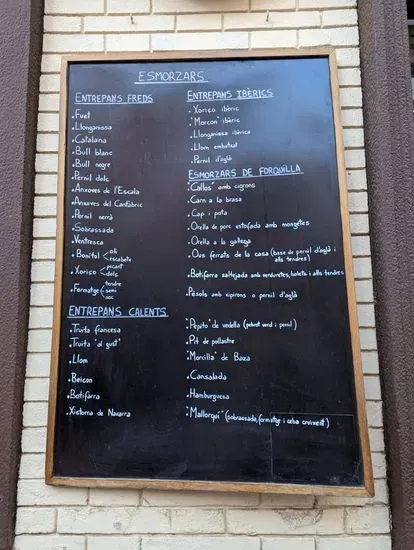 ESMORZARS
ENTREPANS FREDS
.Fuet
.Llonganissa
.Catalana
.Bull blanc
.Bull negre
.Pernil dolç
.Anxoves de l'Escala
.Anxoves del Cantàbric
.Pernil serrà
.Sobrassada
.Ventresca
.Bonítol oli
escabetx
.Xoriço picant
dolç
.Formatge tendre
semi
sec
ENTREPANS CALENTS
.Truita francesa
.Truita "al gust"
.Llom
.Beicon
.Botifarra
.Xistorra de Navarra
ENTREPANS IBÈRICS
.Xoriço ibèric
."Morcon" ibèric
.Llonganissa ibèrica
.Llom embutxat
.Pernil d'aglà
ESMORZARS DE FORQUILLA
."Callos" amb cigrons
.Carn a la brasa
.Cap i pota
.Orella de porc estofada amb mongetes
.Orella a la gallega
.Ous ferrats de la casa (base de pernil d'aglà i
alls tendres)
.Botifarra saltejada amb verduretes, bolets i alls tendres
.Pèsols amb xipirons o pernil d'aglà
."Pepito" de vedella (pebrot verd i pernil)
.Pit de pollastre
."Morcilla" de Baza
.Cansalada
.Hamburguesa
."Mallorquí" (sobrassada, formatge i ceba cruixent)